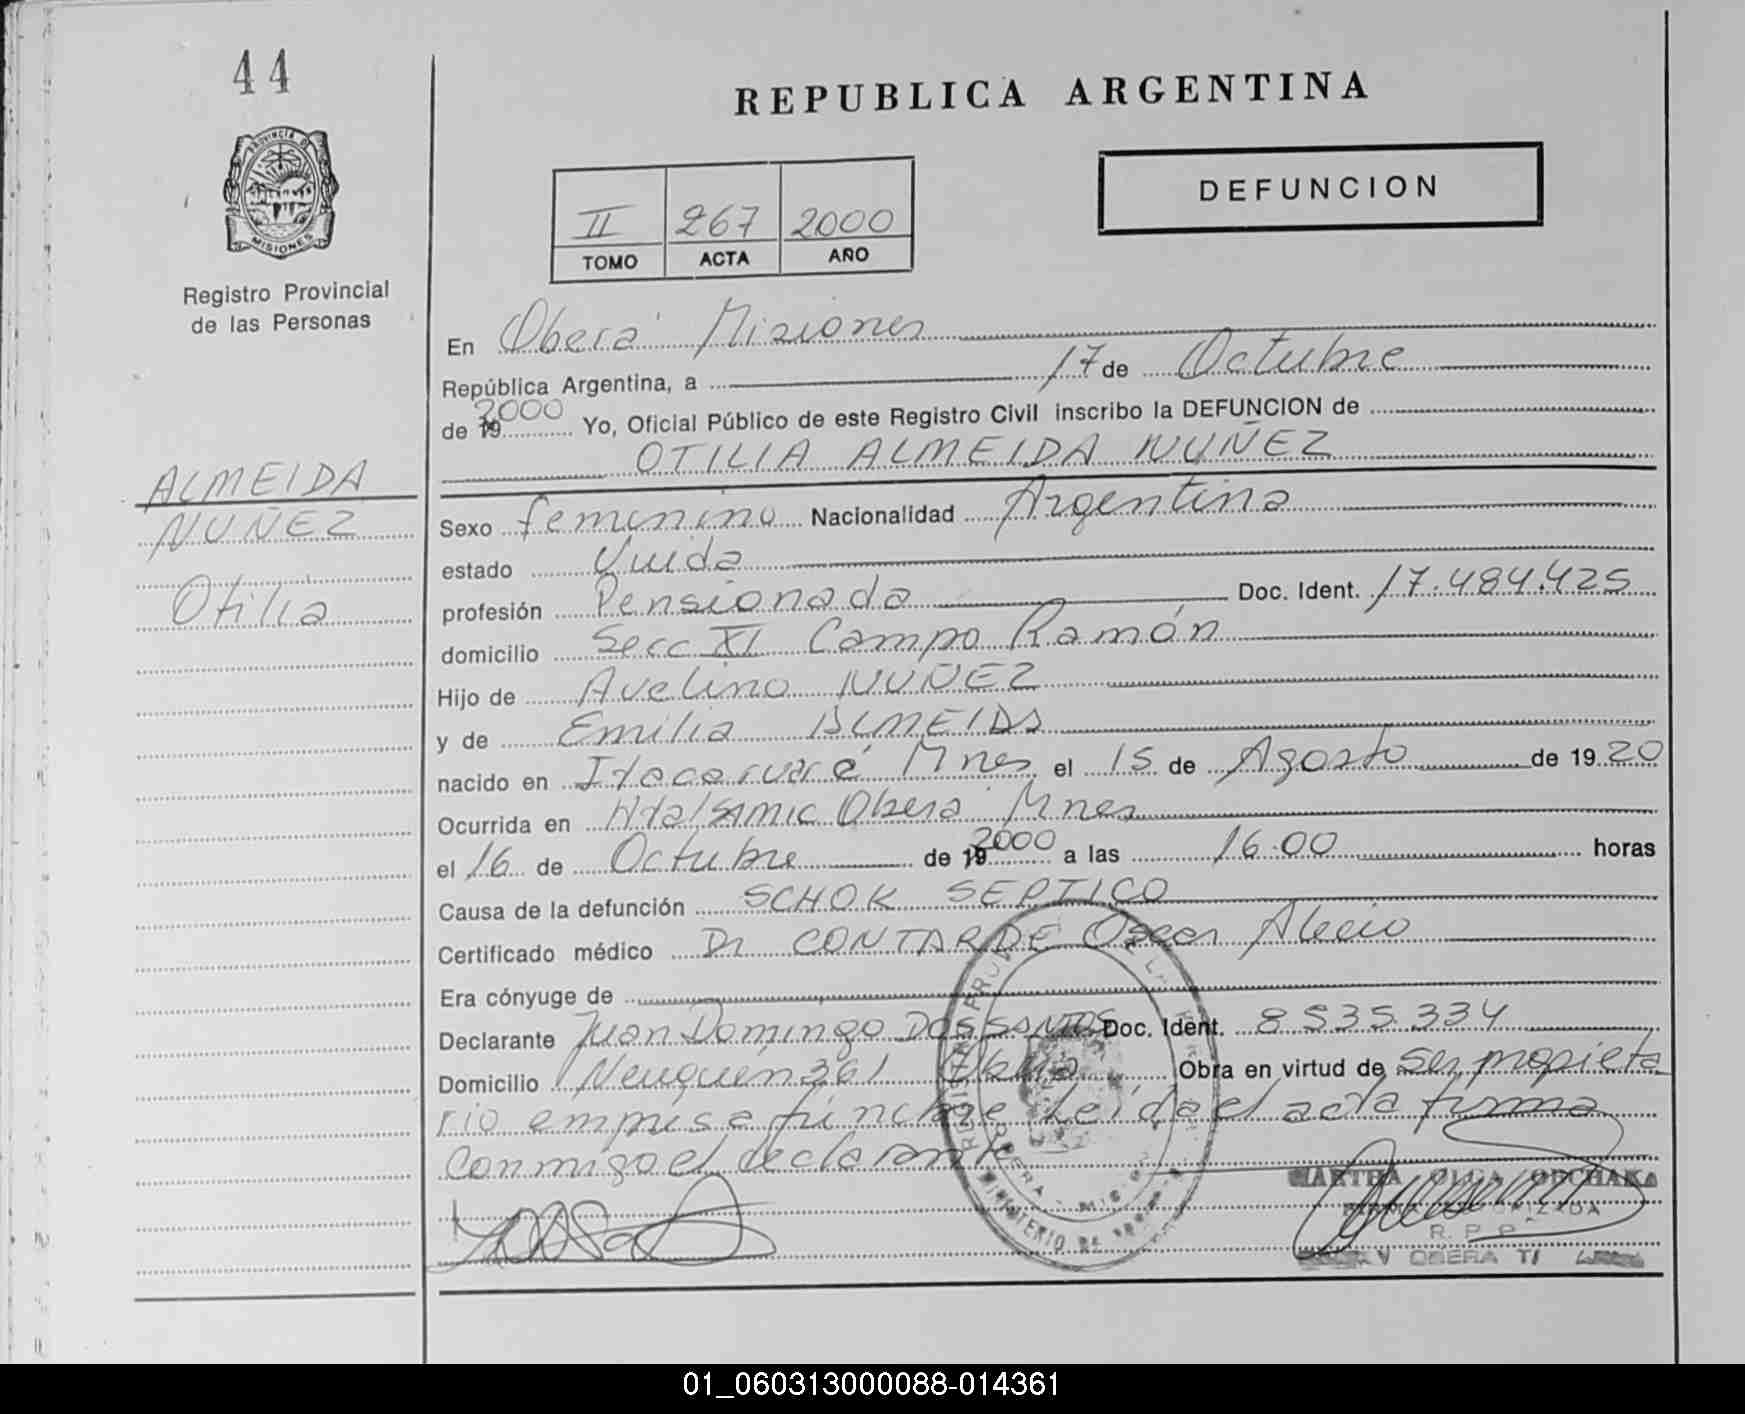 44
REPUBLICA ARGENTINA
PROVINCIA DE
MISIONES
DEFUNCION
II 267 2000
TOMO ACTA AÑO
Registro Provincial
de las Personas
En Oberá Misiones
República Argentina, a 17 de Octubre
de 19 2000 Yo, Oficial Público de este Registro Civil inscribo la DEFUNCION de
OTILIA ALMEIDA NUÑEZ
ALMEIDA
NUÑEZ
Otilia
Sexo femenino Nacionalidad Argentina
estado Viuda
profesión Pensionada Doc. Ident. 17.484.425
domicilio Secc XI Campo Ramón
Hijo de Avelino NUÑEZ
y de Emilia ALMEIDA
nacido en Itacaruaré Mnes el 15 de Agosto de 19 20
Ocurrida en Htal SAMIC Oberá Mnes
el 16 de Octubre de 19 2000 a las 16.00 horas
Causa de la defunción SCHOK SEPTICO
Certificado médico Dr CONTARDE Oscar Alecio
Era cónyuge de
Declarante Juan Domingo DOS SANTOS Doc. Ident. 8 535.334
Domicilio Neuquén 361 Oberá Obra en virtud de ser propieta
rio empresa fúnebre Leída el acta firma
conmigo el declarante
MARTHA OLGA
R. P. P.
OBERA
MINISTERIO DE
01_060313000088-014361